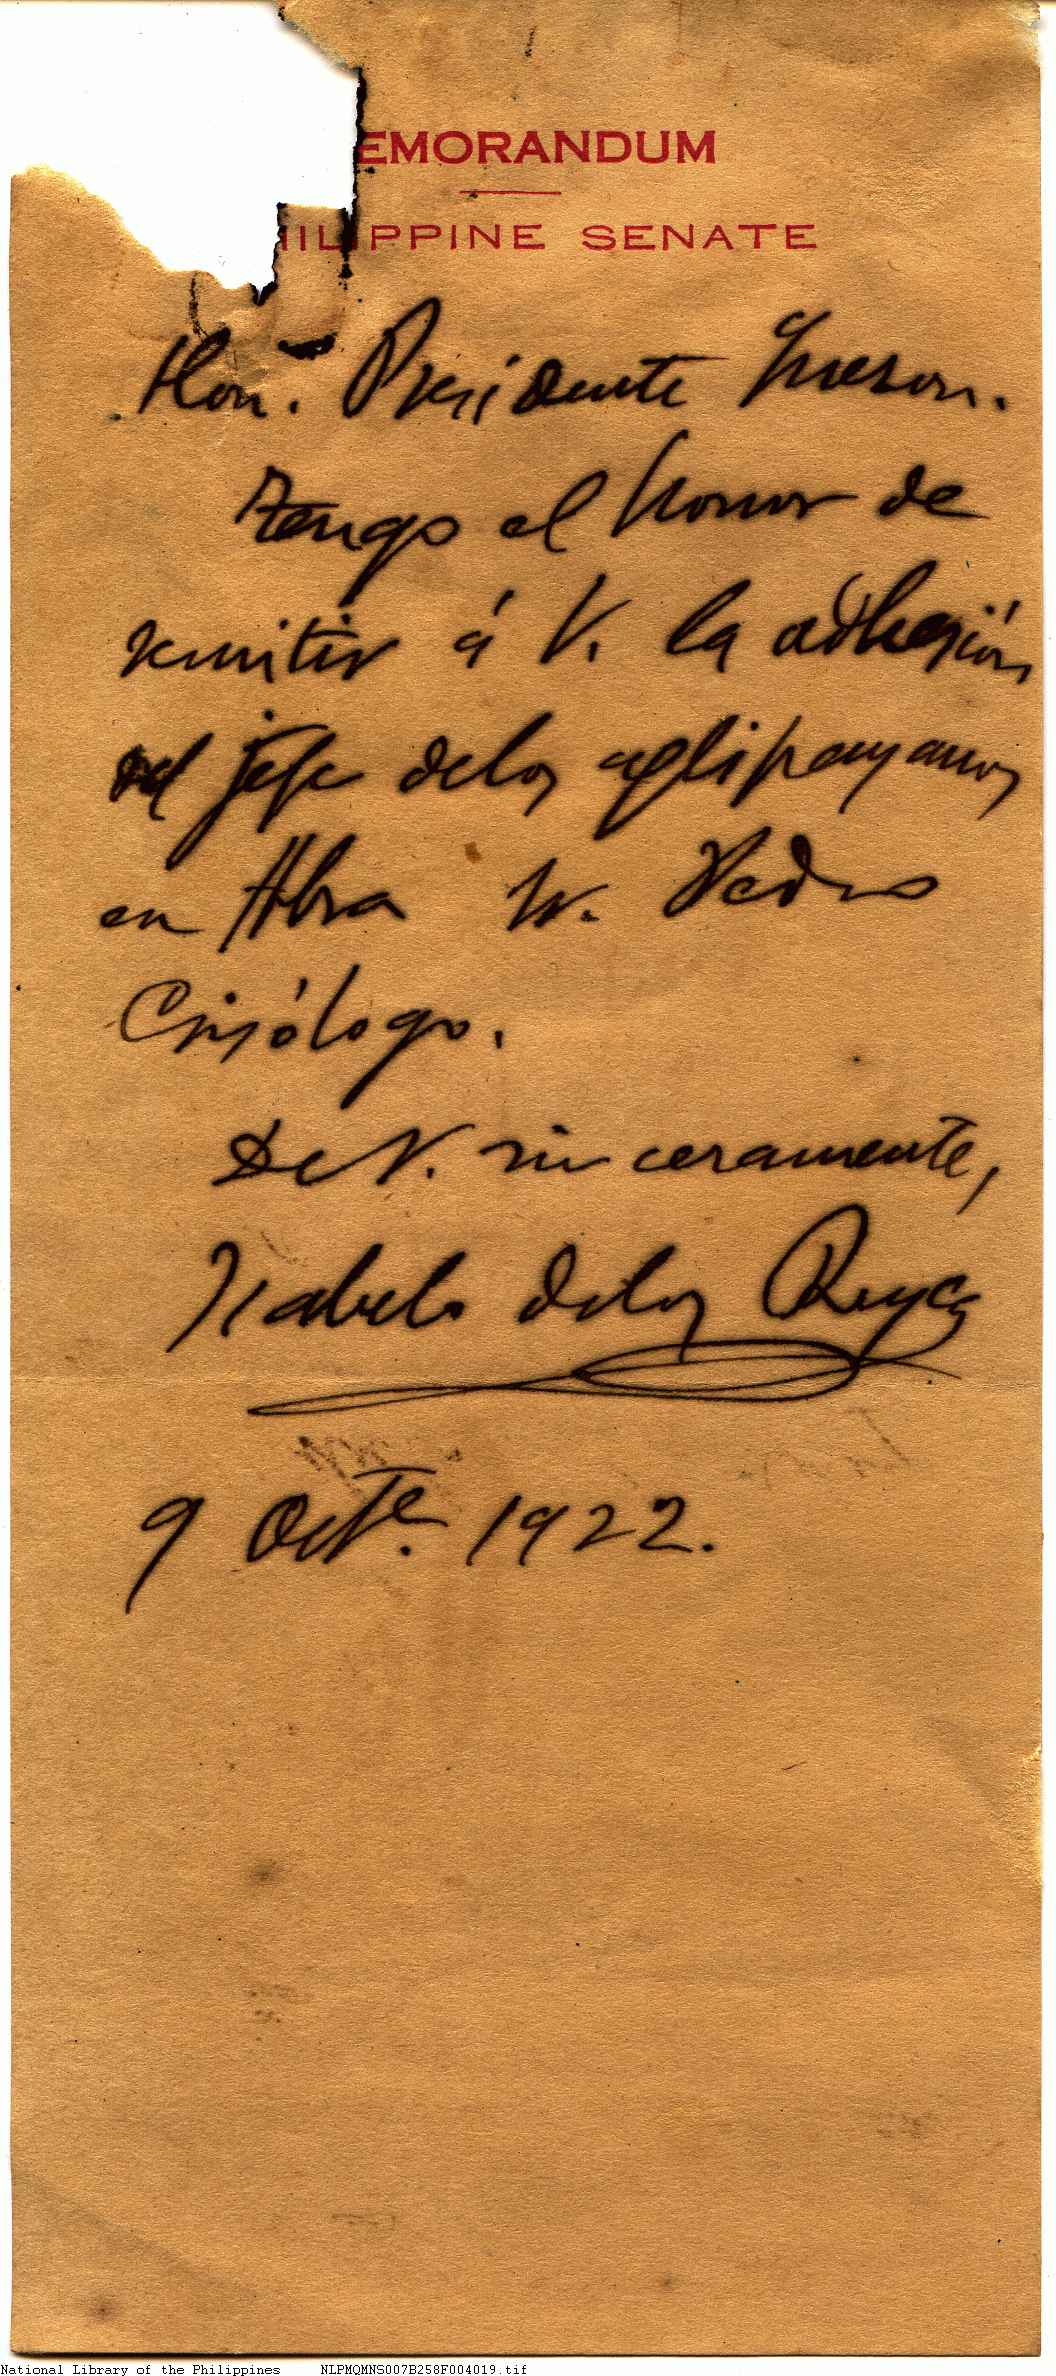 EMORANDUM
HILIPPINE SENATE
Hon. Presidente Quezon.
Tengo el honor de
remitir á V. la adhesión
del jefe de los aglipayanos
en Abra Sr. Pedro
Crisólogo.
De V. sinceramente,
Isabelo de los Reyes
9 Octe. 1922.
National Library of the Philippines NLPMQMNS007B258F004019.tif